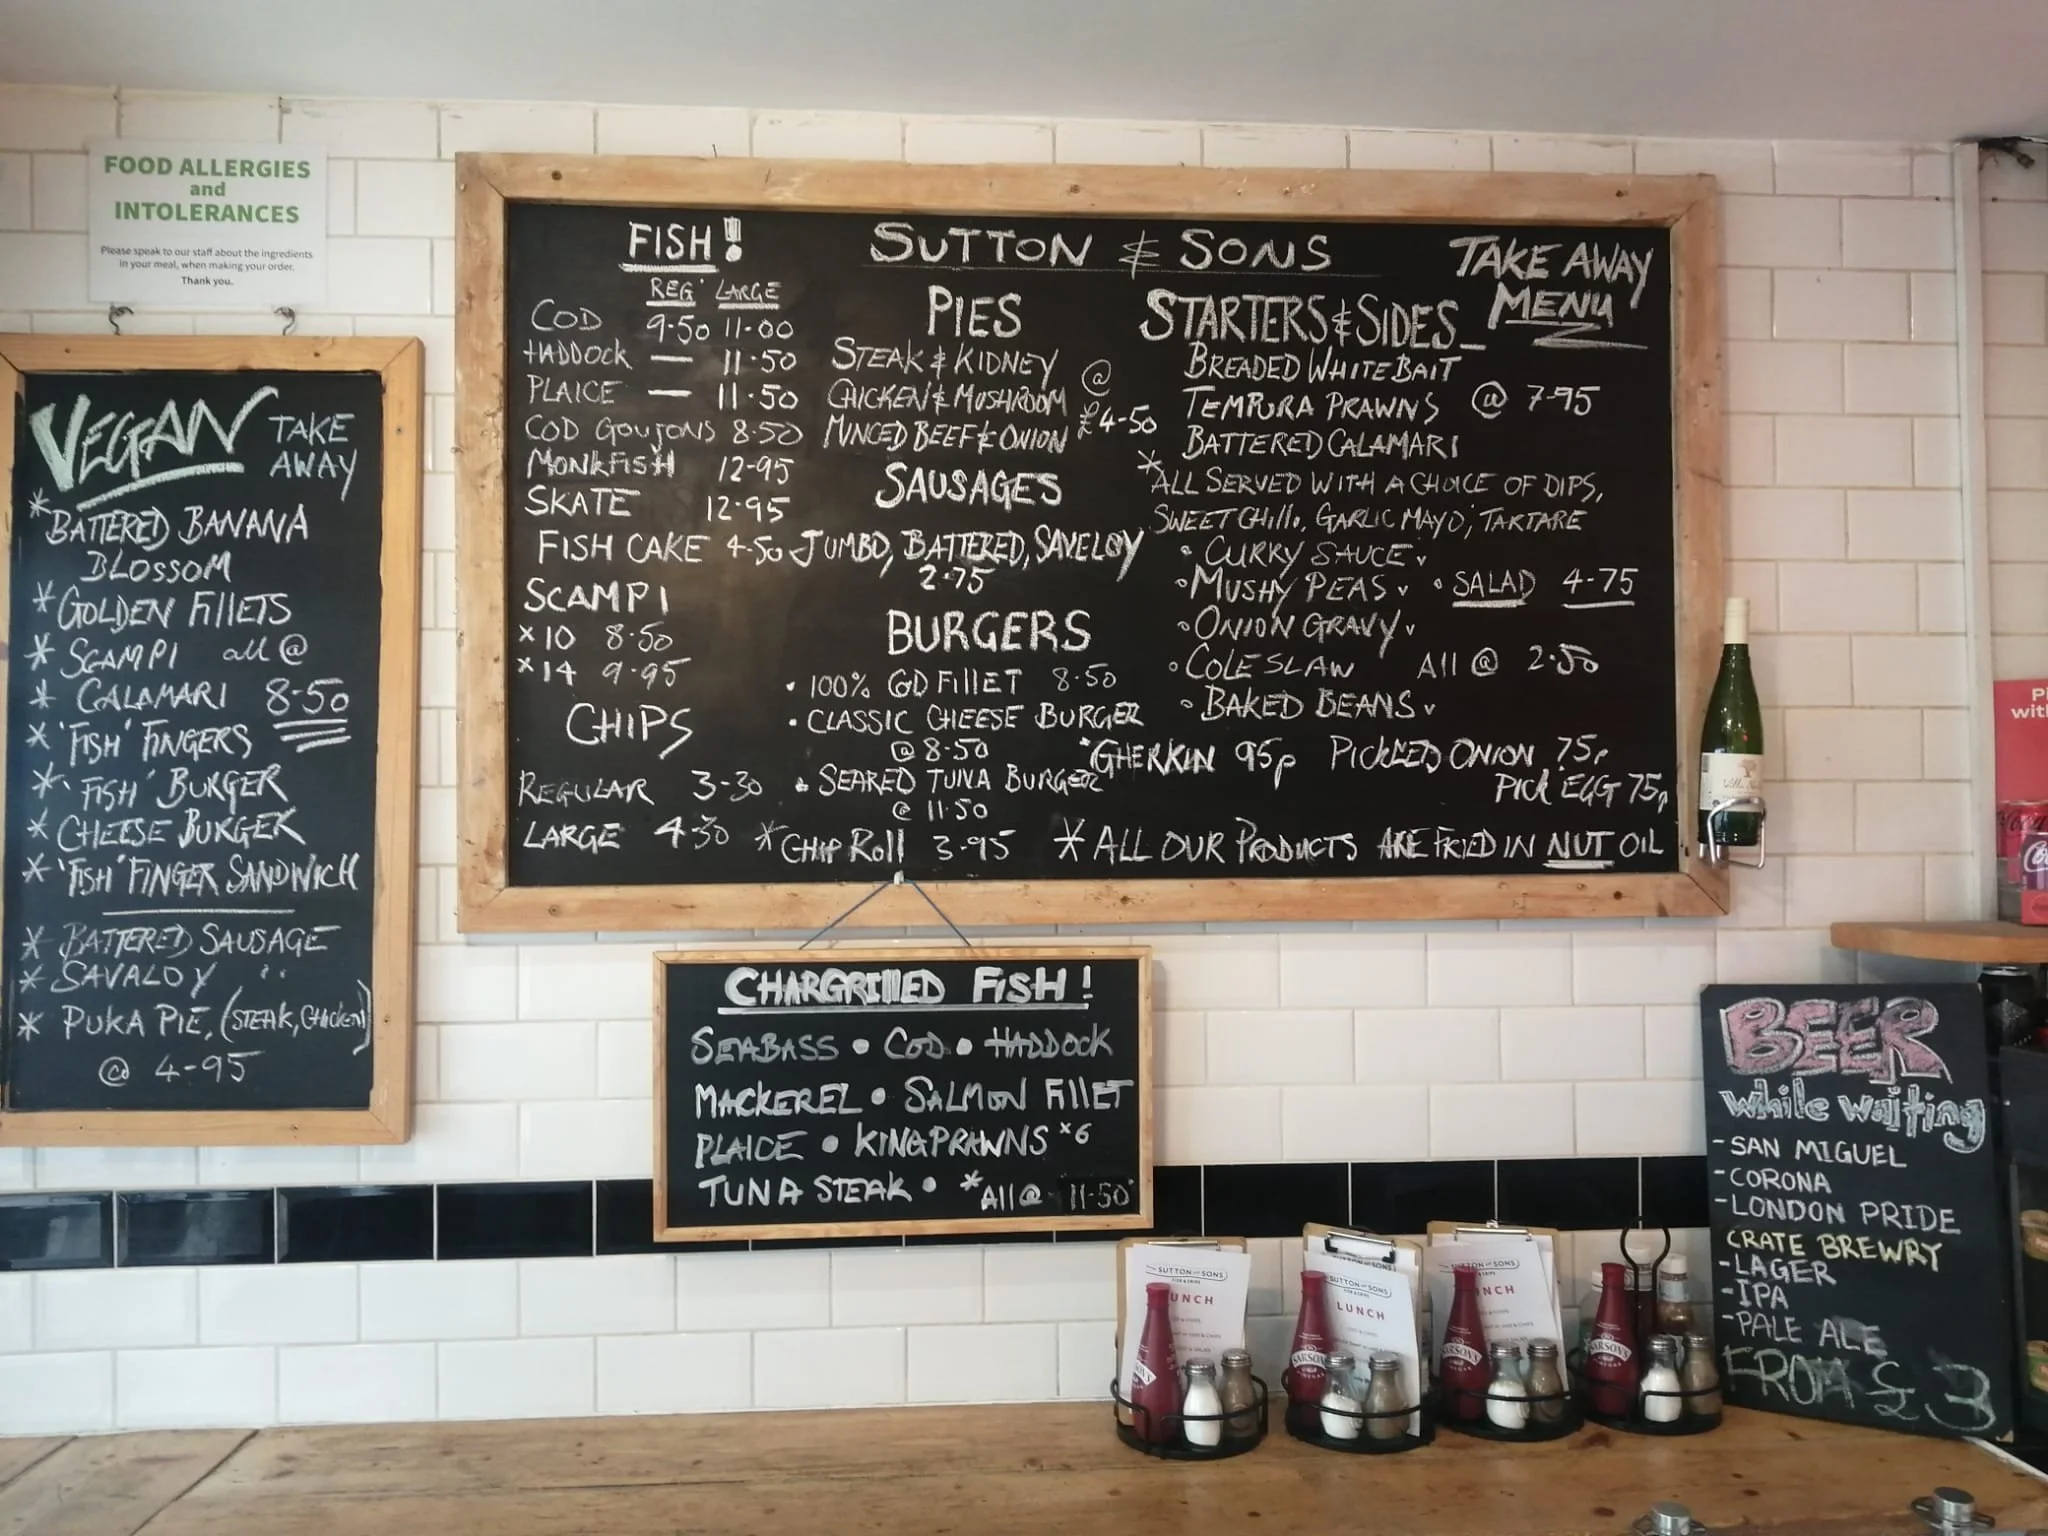 FOOD ALLERGIES
and
INTOLERANCES
Please speak to our staff about the ingredients
in your meal, when making your order.
Thank you.
VEGAN TAKE
AWAY
* BATTERED BANANA
BLOSSOM
* GOLDEN FILLETS
* SCAMPI all @
* CALAMARI 8.50
* 'FISH' FINGERS
* 'FISH' BURGER
* CHEESE BURGER
* 'FISH' FINGER SANDWICH
* BATTERED SAUSAGE
* SAVALOY " "
* PUKA PIE, (STEAK, CHICKEN)
@ 4-95
SUTTON & SONS
TAKE AWAY
MENU
FISH!
REG' LARGE
COD 9.50 11.00
HADDOCK — 11.50
PLAICE — 11.50
COD GOUJONS 8.50
MONKFISH 12-95
SKATE 12-95
FISH CAKE 4.50
SCAMPI
×10 8.50
×14 9.95
CHIPS
REGULAR 3-30
LARGE 4.30
PIES
STEAK & KIDNEY @
CHICKEN & MUSHROOM £4-50
MINCED BEEF & ONION
SAUSAGES
JUMBO, BATTERED, SAVELOY
2.75
BURGERS
• 100% COD FILLET 8.50
• CLASSIC CHEESE BURGER
@ 8.50
• SEARED TUNA BURGER
@ 11.50
* CHIP ROLL 3-95
STARTERS & SIDES_
BREADED WHITEBAIT
TEMPURA PRAWNS @ 7-95
BATTERED CALAMARI
* ALL SERVED WITH A CHOICE OF DIPS,
SWEET CHILLI, GARLIC MAYO, TARTARE
• CURRY SAUCE v
• MUSHY PEAS v • SALAD 4-75
• ONION GRAVY v
• COLESLAW All @ 2.50
• BAKED BEANS v
* GHERKIN 95p PICKLED ONION 75p
PICK EGG 75p
* ALL OUR PRODUCTS ARE FRIED IN NUT OIL
CHARGRILLED FISH!
SEABASS • COD • HADDOCK
MACKEREL • SALMON FILLET
PLAICE • KING PRAWNS ×6
TUNA STEAK • * All @ 11-50
BEER
while waiting
- SAN MIGUEL
- CORONA
- LONDON PRIDE
CRATE BREWRY
- LAGER
- IPA
- PALE ALE
FROM £3
SUTTON AND SONS
UNCH
SUTTON AND SONS
LUNCH
SUTTON AND SONS
NCH
SARSON'S
SARSON'S
SARSON'S